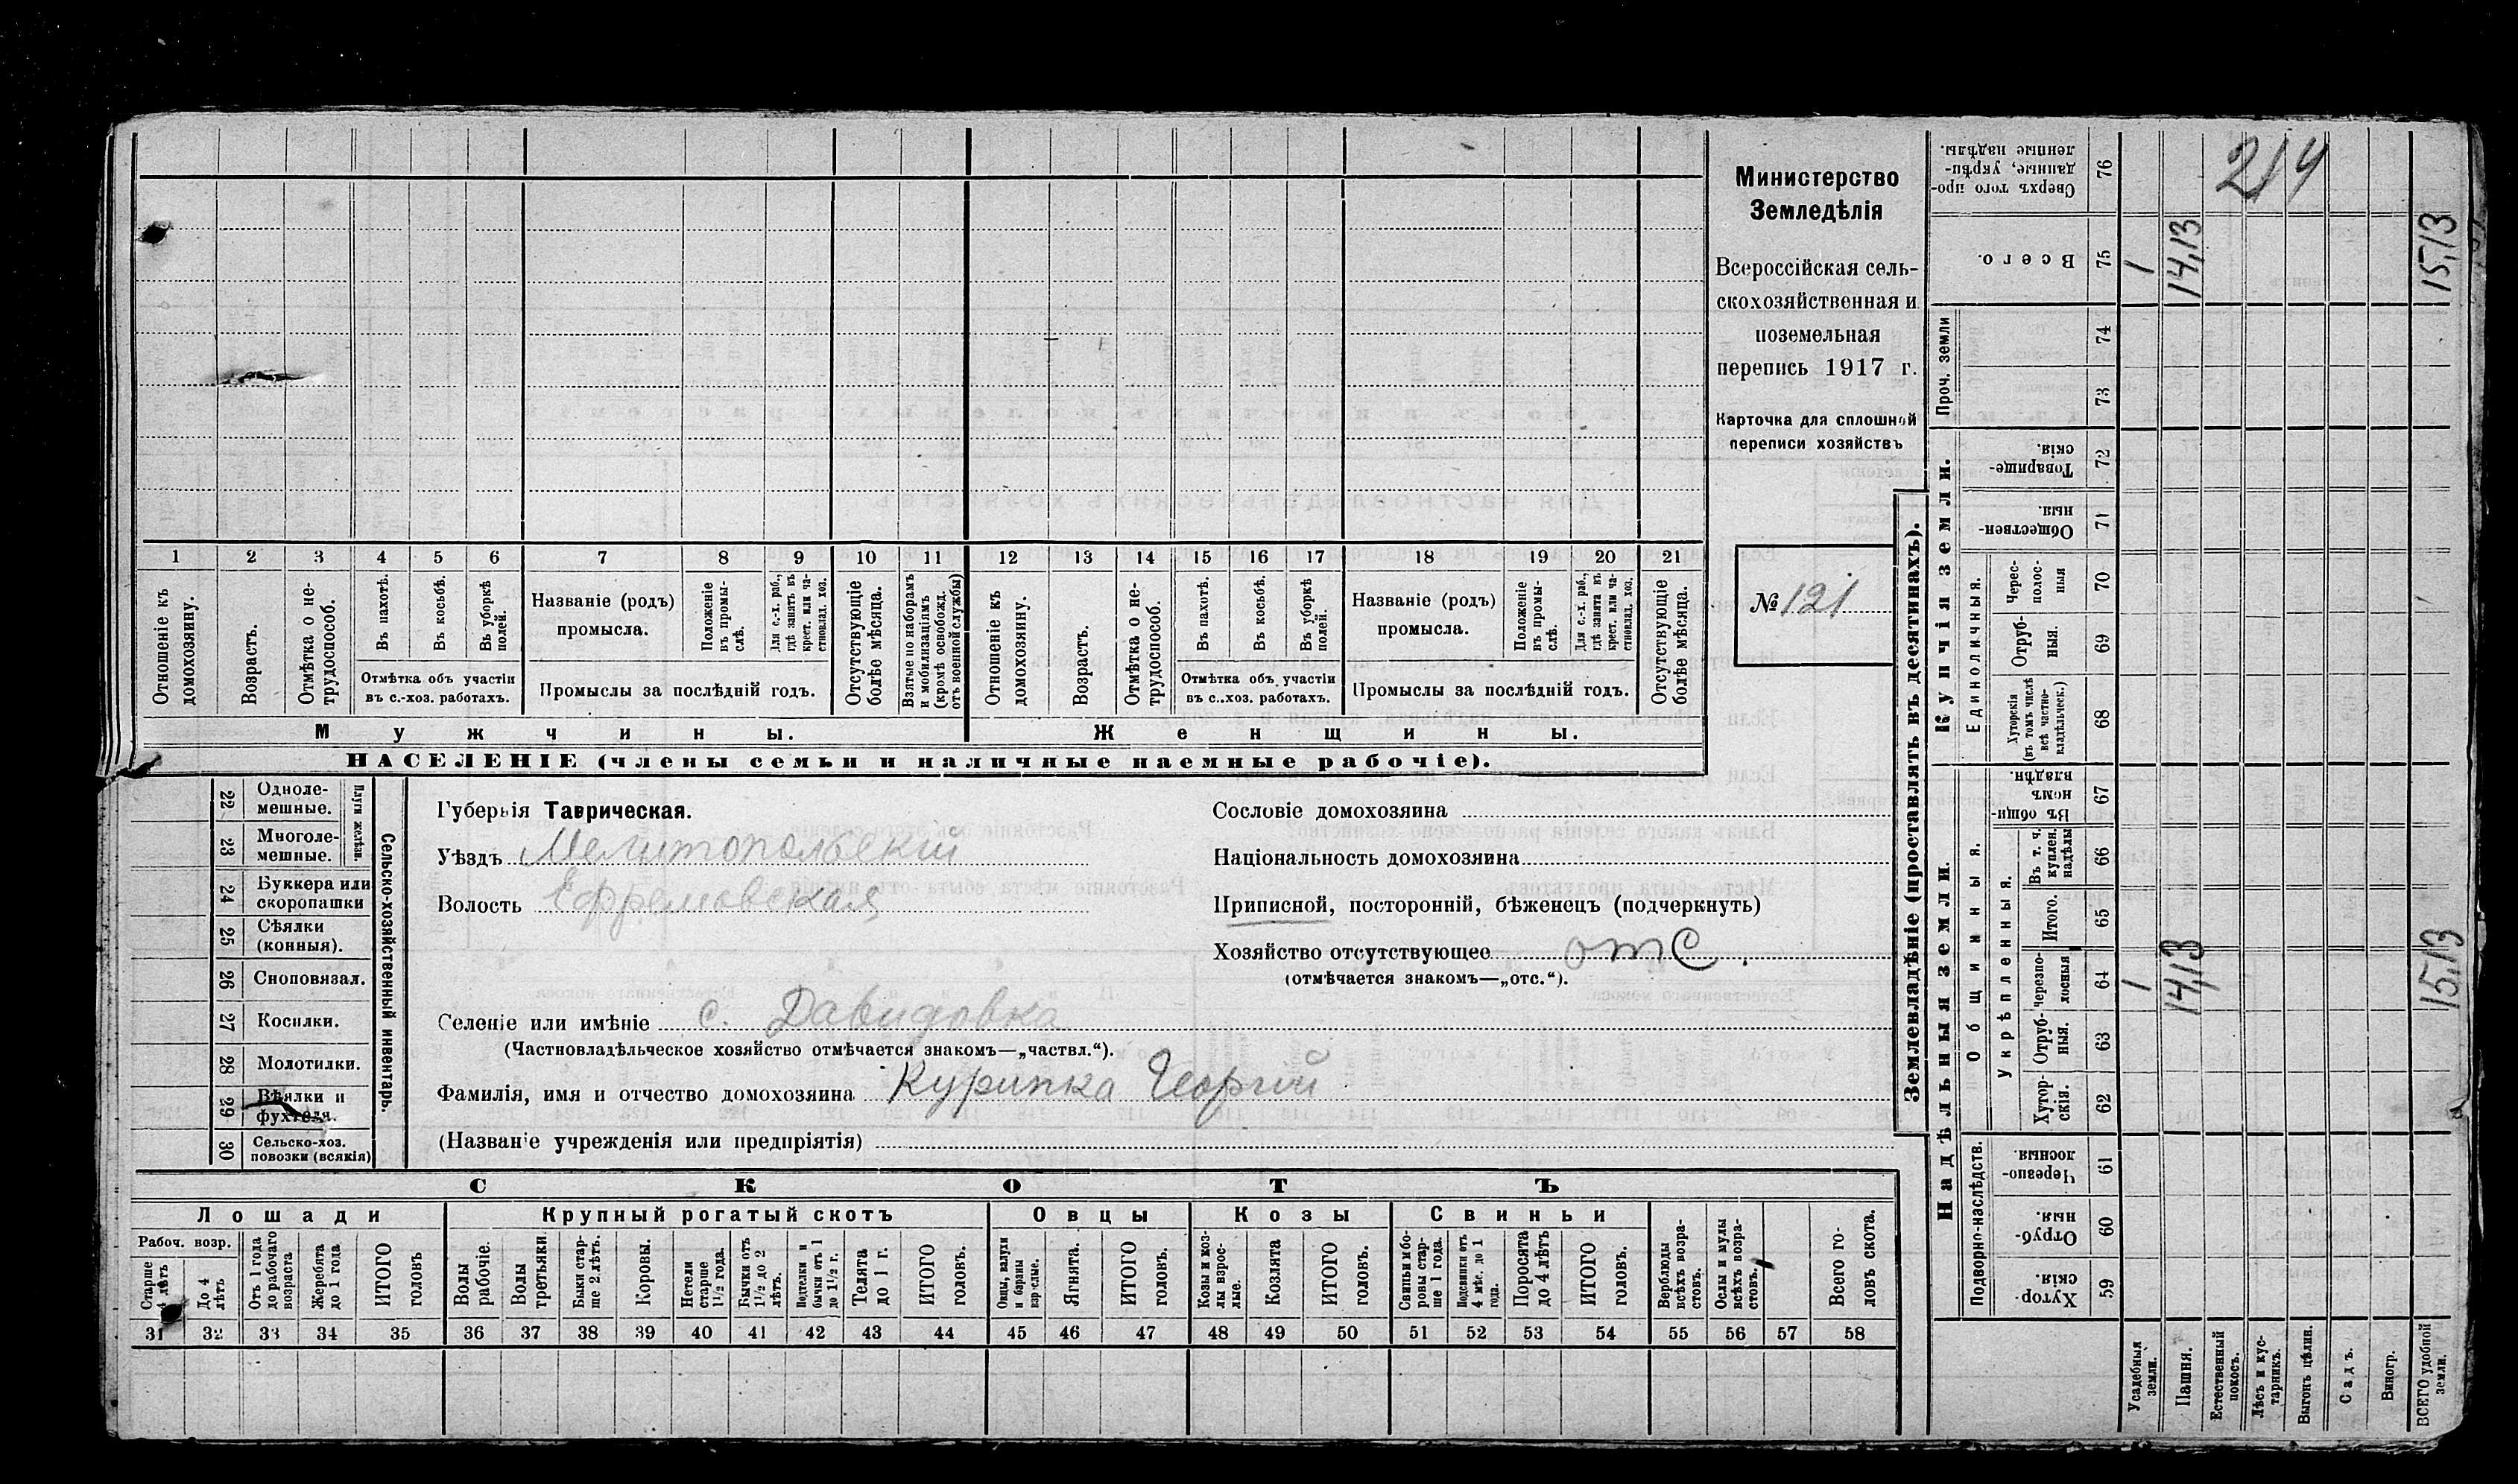 214
Министерство
Земледѣлія
Всероссійская сель-
скохозяйственная и
поземельная
перепись 1917 г.
Карточка для сплошной
переписи хозяйствъ
№ 121
1 2 3 4 5 6 7 8 9 10 11 12 13 14 15 16 17 18 19 20 21
Отношеніе къ домохозяину.
Возрастъ.
Отмѣтка о не-трудоспособ.
Въ пахотѣ.
Въ косьбѣ.
Въ уборкѣ полей.
Отмѣтка объ участіи
въ с.-хоз. работахъ.
Названіе (родъ)
промысла.
Положеніе въ промы-слѣ.
Для с.-х. раб., гдѣ занятъ въ крест. или ча-стновлад. хоз.
Промыслы за послѣдній годъ.
Отсутствующіе болѣе мѣсяца.
Взятые по наборамъ и мобилизаціямъ (кромѣ освобожд. отъ военной службы)
Отношеніе къ домохозяину.
Возрастъ.
Отмѣтка о не-трудоспособ.
Въ пахотѣ.
Въ косьбѣ.
Въ уборкѣ полей.
Отмѣтка объ участіи
въ с.-хоз. работахъ.
Названіе (родъ)
промысла.
Положеніе въ промы-слѣ.
Для с.-х. раб., гдѣ занята въ крест. или ча-стновлад. хоз.
Промыслы за послѣдній годъ.
Отсутствующіе болѣе мѣсяца.
Мужчины. Женщины.
НАСЕЛЕНІЕ (члены семьи и наличные наемные рабочіе).
22 Одноле-мешные.
23 Многоле-мешные.
Плуги желѣзн.
24 Буккера или скоропашки
25 Сѣялки (конныя).
26 Сноповязал.
27 Косилки.
28 Молотилки.
29 Вѣялки и фухтеля.
30 Сельско-хоз. повозки (всякія)
Сельско-хозяйственный инвентарь.
Губернія Таврическая.
Уѣздъ Мелитопольскій
Волость Ефремовская
Сословіе домохозяина
Національность домохозяина
Приписной, посторонній, бѣженецъ (подчеркнуть)
Хозяйство отсутствующее отс.
(отмѣчается знакомъ—„отс.“).
Селеніе или имѣніе с. Давидовка
(Частновладѣльческое хозяйство отмѣчается знакомъ—„частвл.“).
Фамилія, имя и отчество домохозяина Курипка Георгій
(Названіе учрежденія или предпріятія)
СКОТЪ
Лошади Крупный рогатый скотъ Овцы Козы Свиньи
Рабоч. возр.
Старше 4 лѣтъ
До 4 лѣтъ
Отъ 1 года до рабочаго возраста
Жеребята до 1 года
ИТОГО головъ
Волы рабочіе.
Волы третьяки.
Быки стар-ше 2 лѣтъ.
Коровы.
Нетели старше 1½ года.
Бычки отъ 1½ до 2 лѣтъ.
Подтелки и бычки отъ 1 до 1½ г.
Телята до 1 г.
ИТОГО головъ.
Овцы, валухи и бараны взрослые.
Ягнята.
ИТОГО головъ.
Козы и коз-лы взрос-лые.
Козлята
ИТОГО головъ.
Свиньи и бо-ровы стар-ше 1 года.
Подсвинки отъ 4 мѣс. до 1 года.
Поросята до 4 лѣтъ
ИТОГО головъ.
Верблюды всѣхъ возра-стовъ.
Ослы и мулы всѣхъ возра-стовъ.
Всего го-ловъ скота.
31 32 33 34 35 36 37 38 39 40 41 42 43 44 45 46 47 48 49 50 51 52 53 54 55 56 57 58
Землевладѣніе (проставлять въ десятинахъ).
Надѣльныя земли. Купчія земли. Проч. земли
Подворно-наслѣдств.
Общинныя.
Укрѣпленныя.
Единоличныя.
Хутор-скія. 59
Отруб-ныя. 60
Черезпо-лосныя. 61
Хутор-скія. 62
Отруб-ныя. 63
Черезпо-лосныя 64
Итого. 65
Въ т. ч. куплен. надѣлы 66
Въ общин-номъ владѣн. 67
Хуторскія (въ томъ числѣ всѣ частно-владѣльческ.) 68
Отруб-ныя. 69
Черес-полос-ныя 70
Обществен-ныя. 71
Товарище-скія. 72
73
74
Всего. 75
Сверхъ того про-данные, укрѣп-ленные надѣлы. 76
Усадебныя земли. 1 1
Пашня. 14,13 14,13
Естественный покосъ.
Лѣсъ и кус-тарникъ.
Выгонъ цѣлин.
Садъ.
Виногр.
ВСЕГО удобной земли. 15,13 15,13